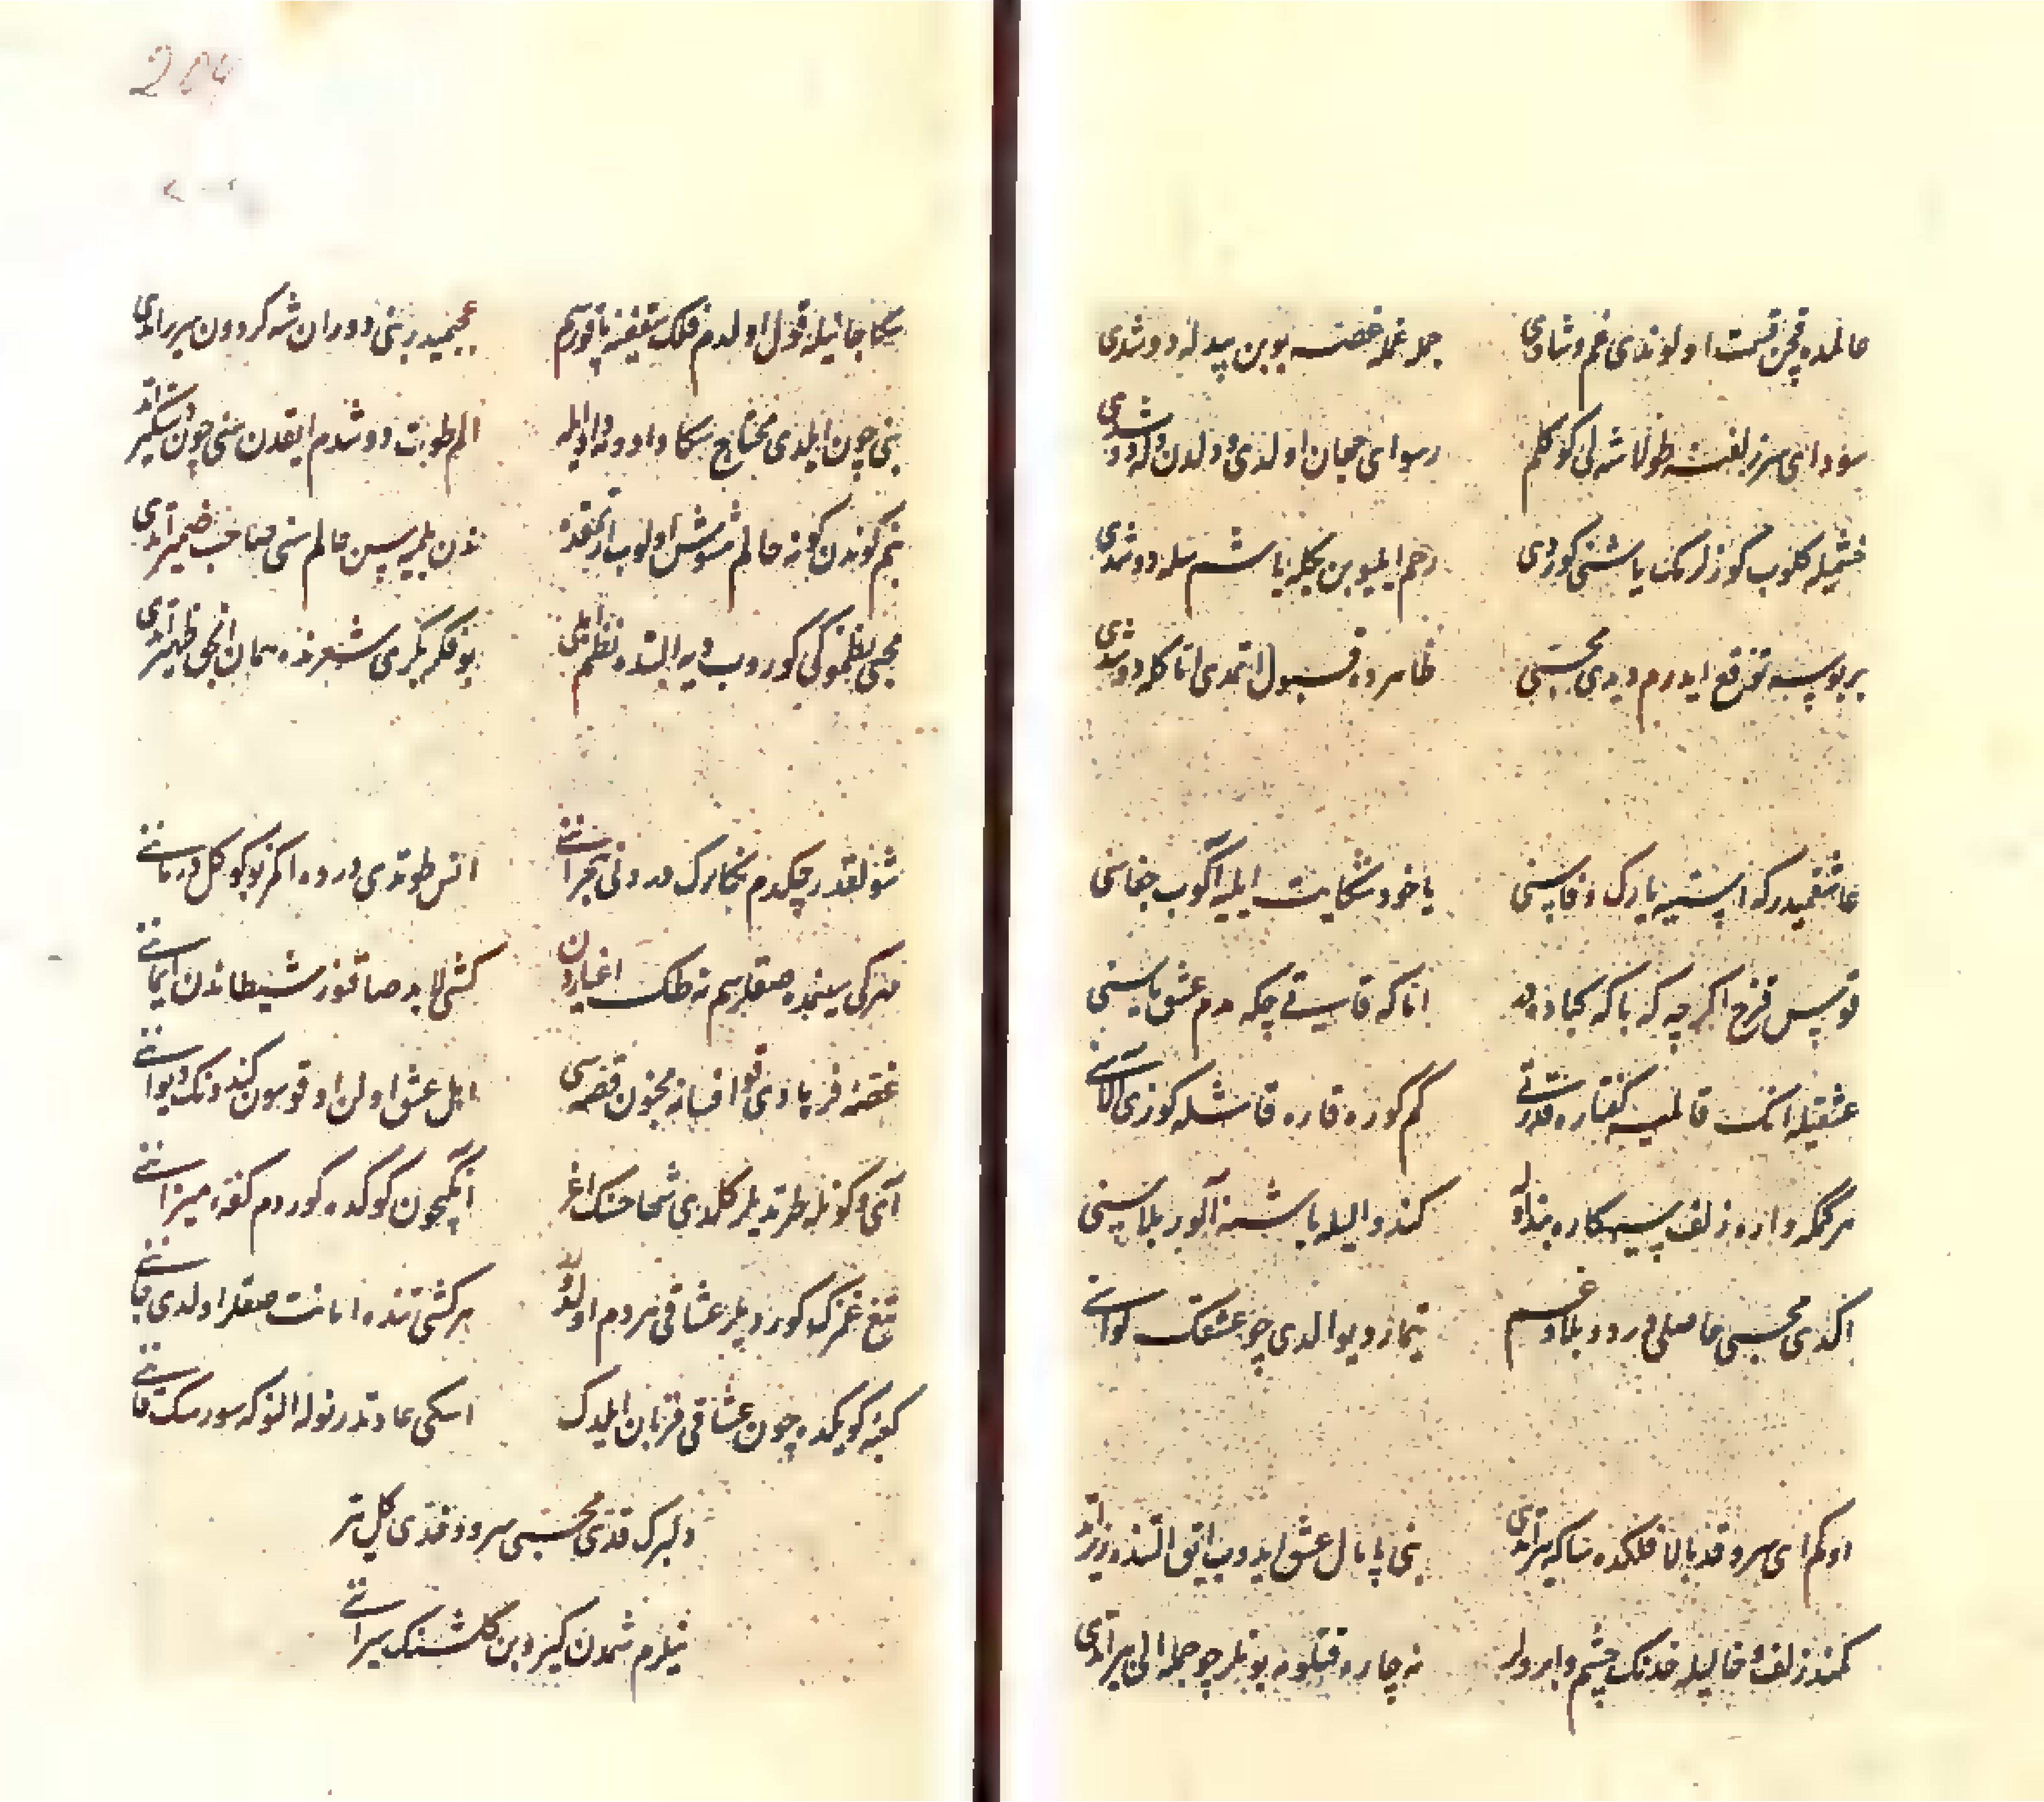 عالمده قچن قسمت اولوندی غم و شادی جمله غمله غصه بو بن بیدله دوشدی
سودای سر زلفنه طولاشه لی کوکلم رسوای جهان اولدی دلدن دله دوشدی
خشمیله کلوب کوزلرمک یاشنی کوردی رحم ایلمیوبن یاشم سله دوشدی
بر بوسه توقع ایدرم دیدی محبی ظاهرده قبول اتمدی اتا کله دوشدی
عاشقمیدر که ایستیه یارک وفاسنی یا خود شکایت ایلیه اکوب جفاسنی
قوس قزح اکرچه که باکه کباده در اتا که قاستی چکه مدم عشق یاسنی
عشقیله انک قالمیه کفتاره قدرتی کم کوره قاره قاشله کوزی الاسنی
هر کمکه واره زلف سیهکاره بند اولر کندو الیله باشنه آلور بلاسنی
اکدی محبی حاصلی درد و بلا و غم تیمار دیو الدی چو عشقک
او کم ای سرو قد بالا فلکده سنا که یراتدی بنی پایمال عشق ایدوب ایاق التنده زیر اتدی
کمند زلف و خالیله خدنک چشم و ابرولر نه چاره قیلو نه بونلر چو جمله الی بر اتدی
204
سکا جانیله قول اولدم فلک سقفنه باقورسم عجبمیدر بنی دوران شه کردون سریر اتدی
بنی چون ایلدی محتاج سکا داد و فریادیله الم طوبت دوشدم ایقدن سنی چون دستکیر اتدی
بنم کوندن کونه حالم مشوش اولوب ارتمقده ندن بلمیه سن حالم سنی صاحب ضمیر اتدی
محبی نظمنوکی کوروب دیه التنده نظم ایلر بو فکر بکری شعرنده همان انجق ظهیر اتدی
شو لقدر چکدم نکارک دردنی هجرانی انس طوتدی درده اکمز بو کوکل درمانی
مهرکی سینمده صقلرسم نه طک اغیاردن کشی لابد صاقنور شیطاندن ایمانی
غصه فرهادی قو افسانه مجنون قصه سی اهل عشق اولن اوقوسون کندونک دیوانی
آی و کونله طرتدیلر کلدی شها حسنک اغر انکیچون کوکده کوردم کفه میزانی
تیغ غمزک کوردیلر عشاقی هردم اولدرر هر کشی تنده امانت صقلر اولدی جانی
کعبه کویکده چون عشاقی قربان ایلدک اسکی عادتدر نوله النوکه سورسک قانی
دلبرک قدنی محبی سرو و خدی کل تر
نیلرم شمدن کیرو بن کلشنک سیرانی